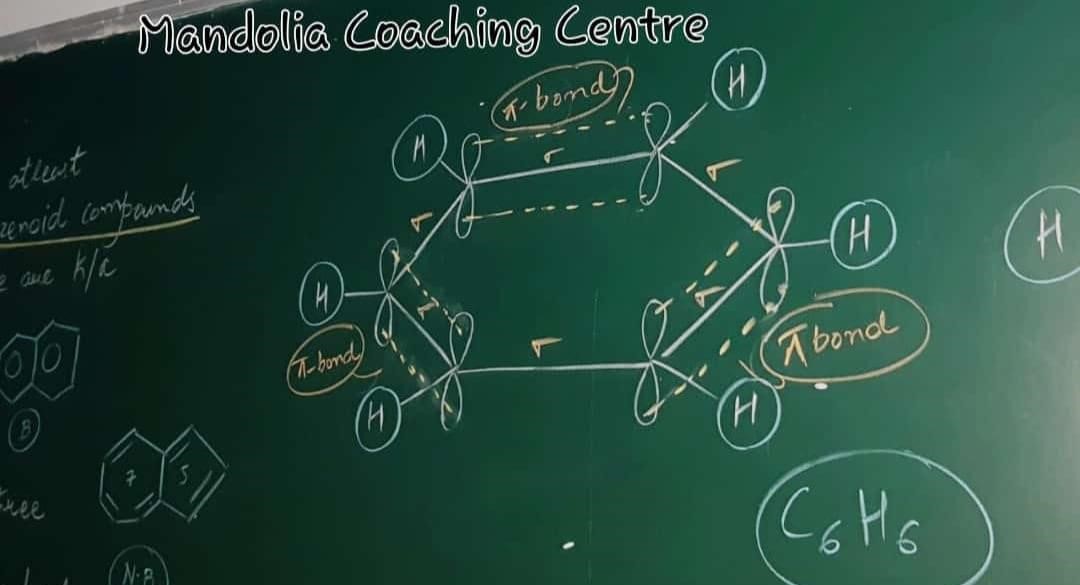 Mandolia Coaching Centre
atleast
zenoid compounds
e are k/a
B
7 5
N.B
π-bond
H
H
σ
σ
σ
H
H
H
π-bond
σ
σ
π bond
H
σ
H
H
C6H6